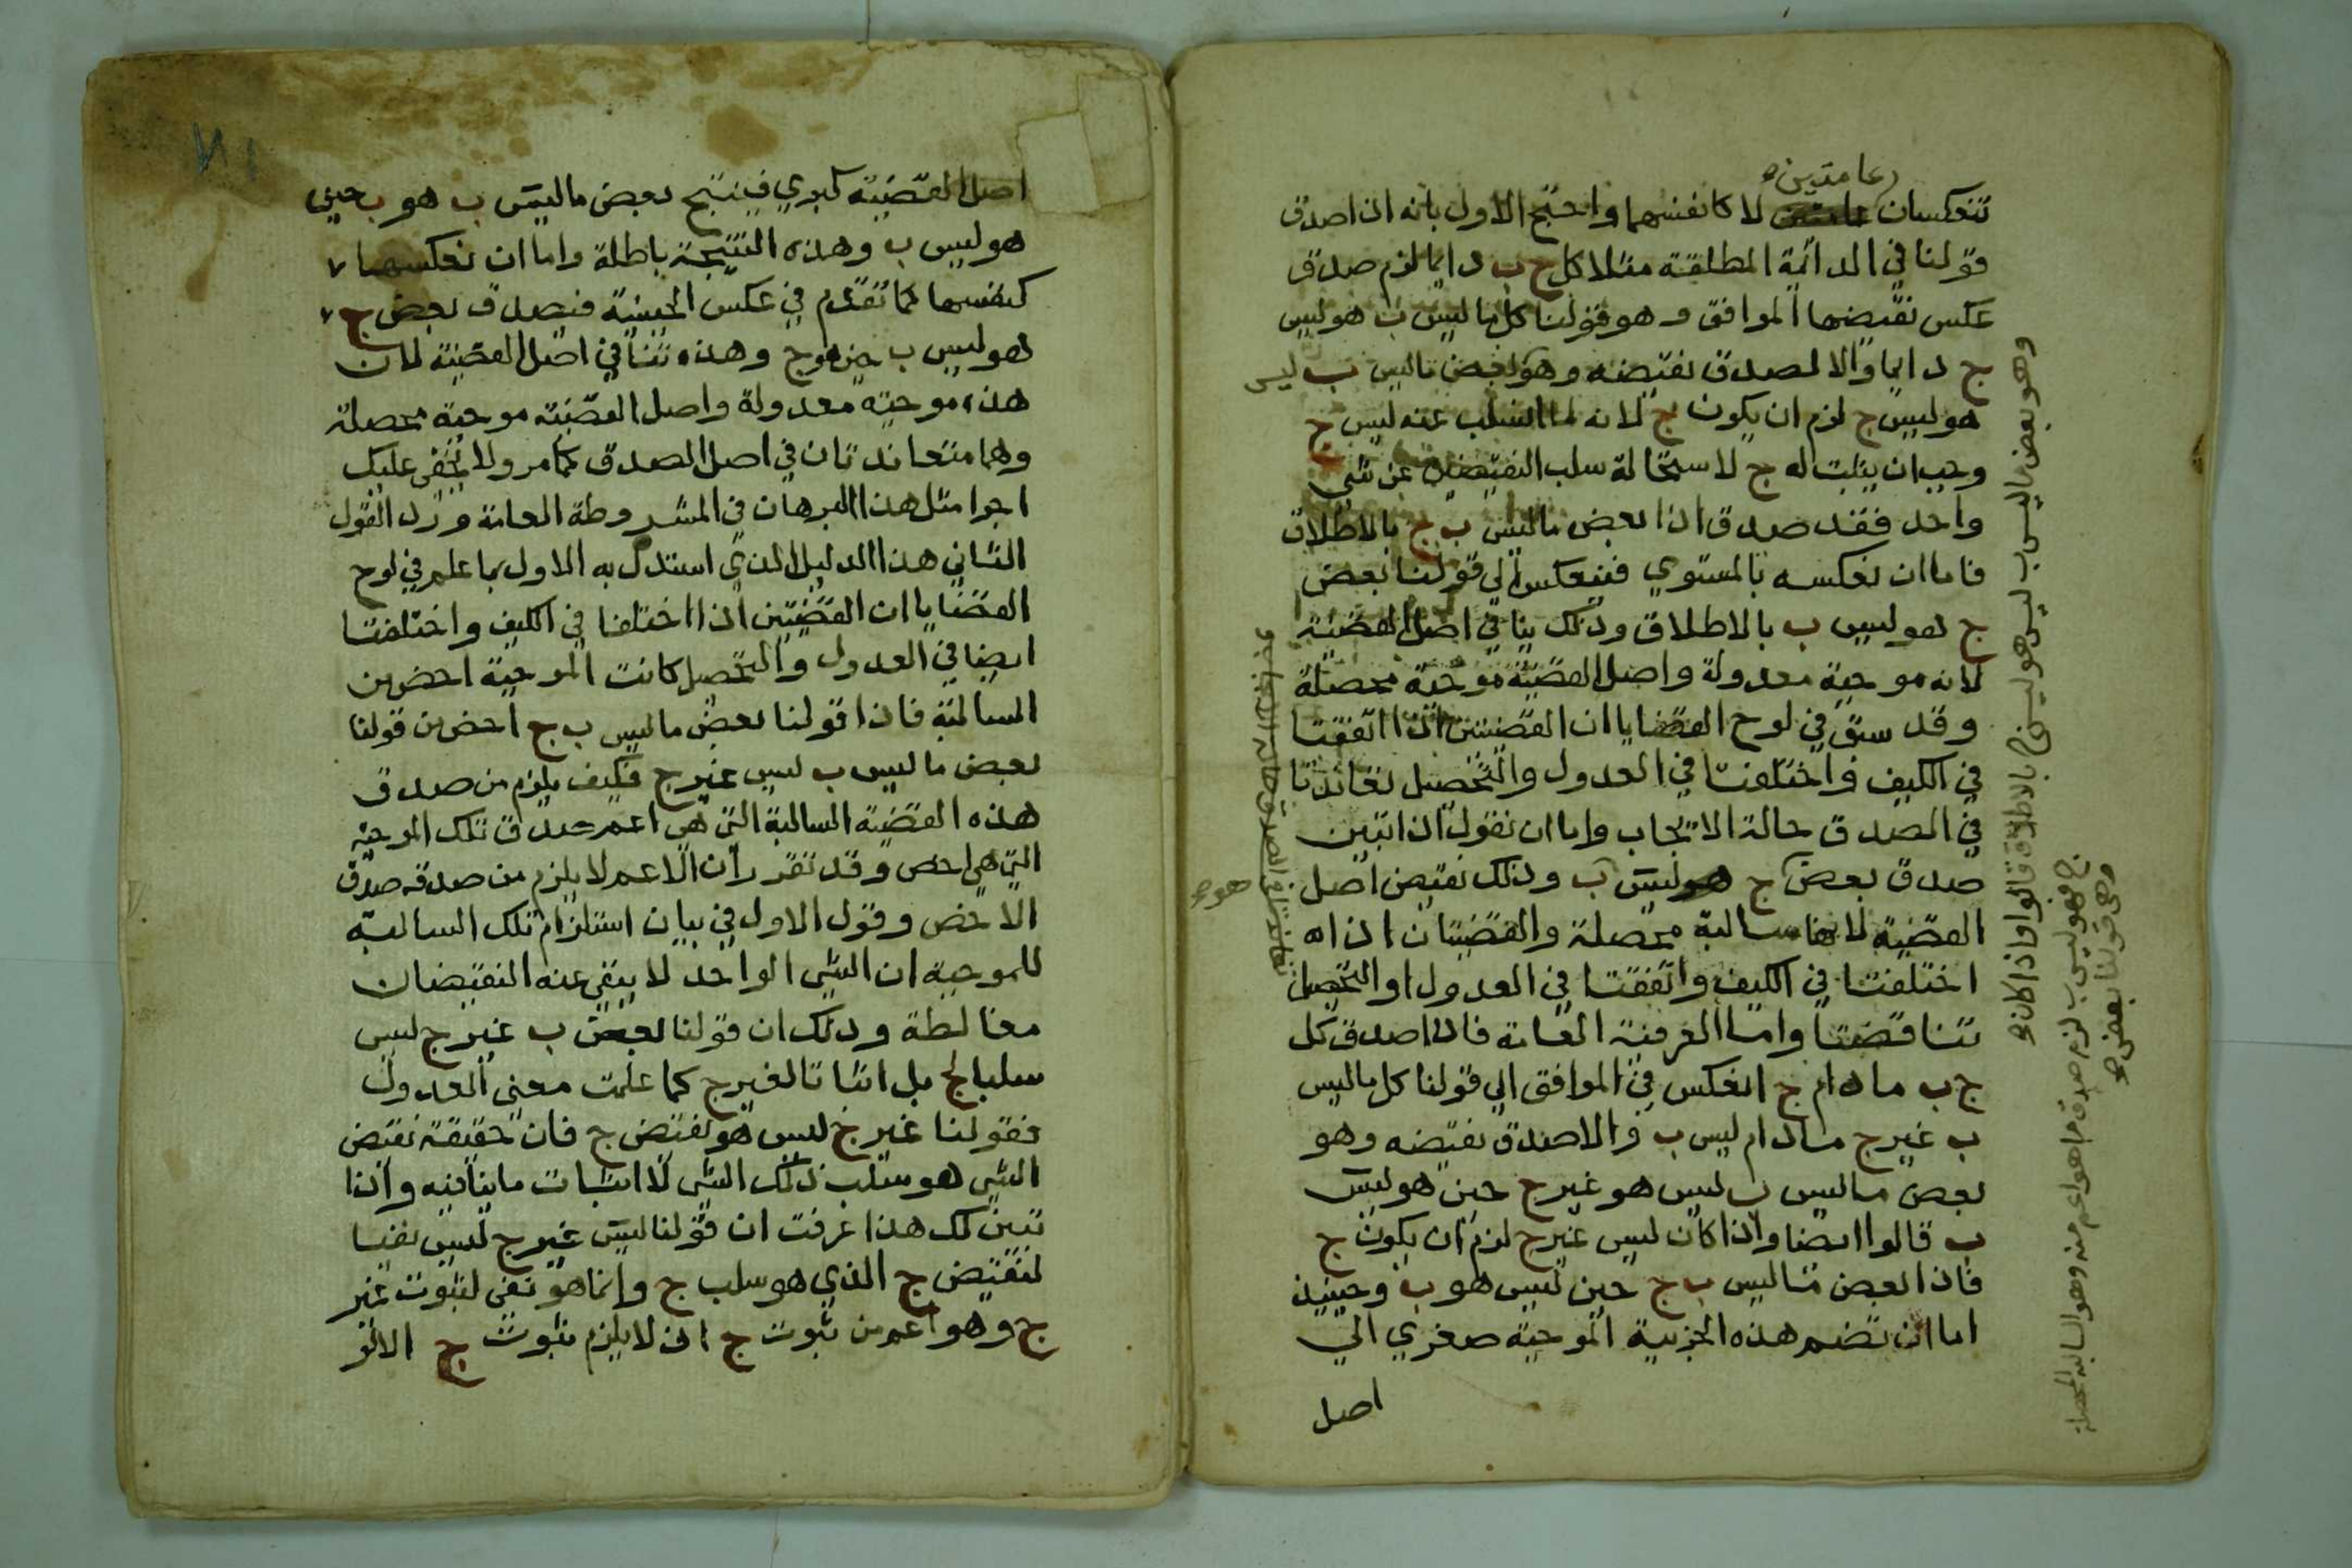 عامتين
تنعكسان لا كانفسهما واحتج الاول بانه اذا صدق
قولنا في الدائمة المطلقة مثلا كل ج ب دايما لزم صدق
عكس نقيضها الموافق وهو قولنا كل ما ليس ب هو ليس
ج دايما والا لصدق نقيضه وهو بعض ما ليس ب ليس
هو ليس ج لزم ان يكون ج لانه لما انسلب عنه ليس ج
وجب ان يثبت له ج لاستحالة سلب النقيضين عن شي
واحد فقد صدق اذا بعض ما ليس ب ج بالاطلاق
فاما ان نعكسه بالمستوي فينعكس الي قولنا بعض
ج هو ليس ب بالاطلاق وذلك ينافي اصل القضية
لانه موجبة معدولة واصل القضية موجبة محصلة
وقد سبق في لوح القضايا ان القضيتين اذا اتفقتا
في الكيف واختلفتا في العدول والتحصيل تعاندتا
في الصدق حالة الايجاب واما ان نقول اذا تبين
صدق بعض ج هو ليس ب وذلك نقيض اصل
القضية لانها سالبة محصلة والقضيتان اذا
اختلفتا في الكيف واتفقتا في العدول او التحصيل
تناقضتا واما العرفية العامة فاذا صدق كل
ج ب ما دام ج انعكس في الموافق الي قولنا كل ما ليس
ب غير ج ما دام ليس ب والا صدق نقيضه وهو
بعض ما ليس ب ليس هو غير ج حين هو ليس
ب قالوا ايضا واذا كان ليس غير ج لزم ان يكون ج
فاذا بعض ما ليس ب ج حين ليس هو ب وحينيذ
اما ان تضم هذه الجزيية الموجبة صغري الي
اصل
وهو بعض ما ليس ب ليس هو ليس ج بالاطلاق قالوا واذا كان
ج فهو ليس ب لزم صدق ما هو اعم منه وهو السالبة المحصلة
وهي قولنا بعض
اصل القضية كبري فينتج بعض ما ليس ب هو ب حين
هو ليس ب وهذه النتيجة باطلة واما ان نعكسها
كنفسها كما تقدم في عكس الحينية فيصدق بعض ج
هو ليس ب حين هو ج وهذه تنافي اصل القضية لان
هذه موجبة معدولة واصل القضية موجبة محصلة
وهما متعاندتان في اصل الصدق كما مر ولا يخفى عليك
اجرا مثل هذا البرهان في المشروطة العامة ورد القول
الثاني هذا الدليل الذي استدل به الاول بما علم في لوح
القضايا ان القضيتين اذا اختلفتا في الكيف واختلفتا
ايضا في العدول والتحصيل كانت الموجبة اخص من
السالبة فاذا قولنا بعض ما ليس ب ج اخص من قولنا
بعض ما ليس ب ليس غير ج فكيف يلزم من صدق
هذه القضية السالبة التي هي اعم صدق تلك الموجبة
التي هي اخص وقد تقرر ان الاعم لا يلزم من صدقه صدق
الاخص وقول الاول في بيان استلزام تلك السالبة
للموجبة ان الشي الواحد لا ينتفي عنه النقيضان
مغالطة وذلك ان قولنا بعض ب غير ج ليس
سلبا لج بل اثباتا لغير ج كما علمت معني العدول
فقولنا غير ج ليس هو نقيض ج فان حقيقة نقيض
الشي هو سلب ذلك الشي لا اثبات ما ينافيه واذا
تبين لك هذا عرفت ان قولنا ليس غير ج ليس نفيا
لنقيض ج الذي هو سلب ج وانما هو نفي لثبوت غير
ج وهو اعم من ثبوت ج اذ لا يلزم ثبوت ج الا لو